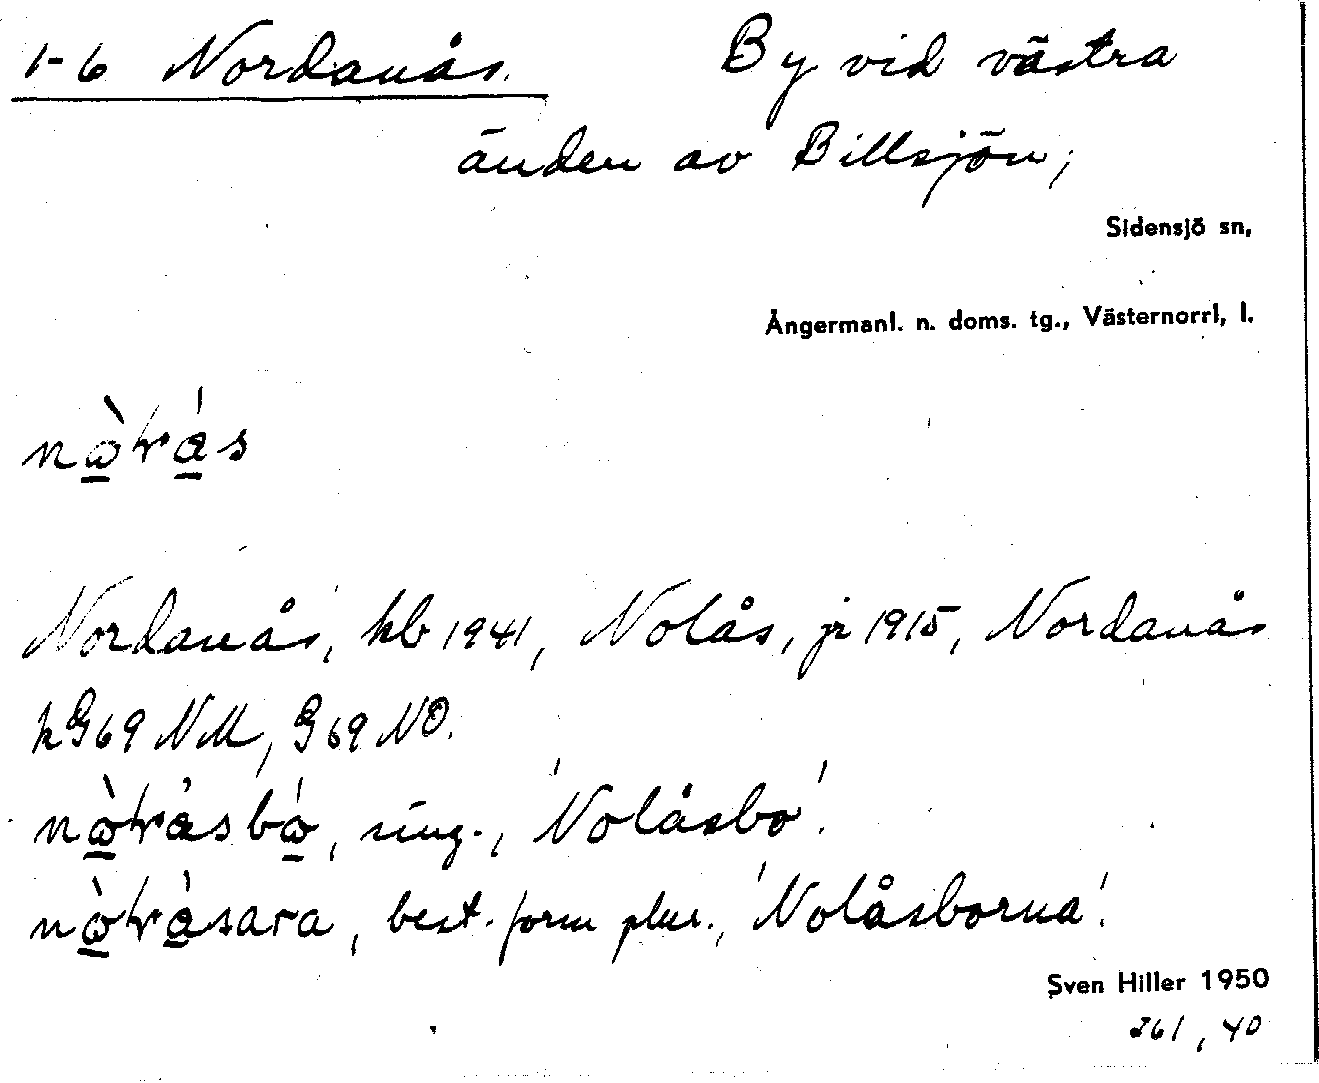 1-6 Nordanås. By vid västra
änden av Billsjön,
Sidensjö sn,
Ångermanl. n. doms. tg., Västernorrl, l.
Nordanås, kb 1941, Nolås, jr 1915, Nordanås
k G69 NM, G69 NO.
sing., 'Nolåsbo'.
best. form plur., 'Nolåsborna'.
Sven Hiller 1950
261, 40